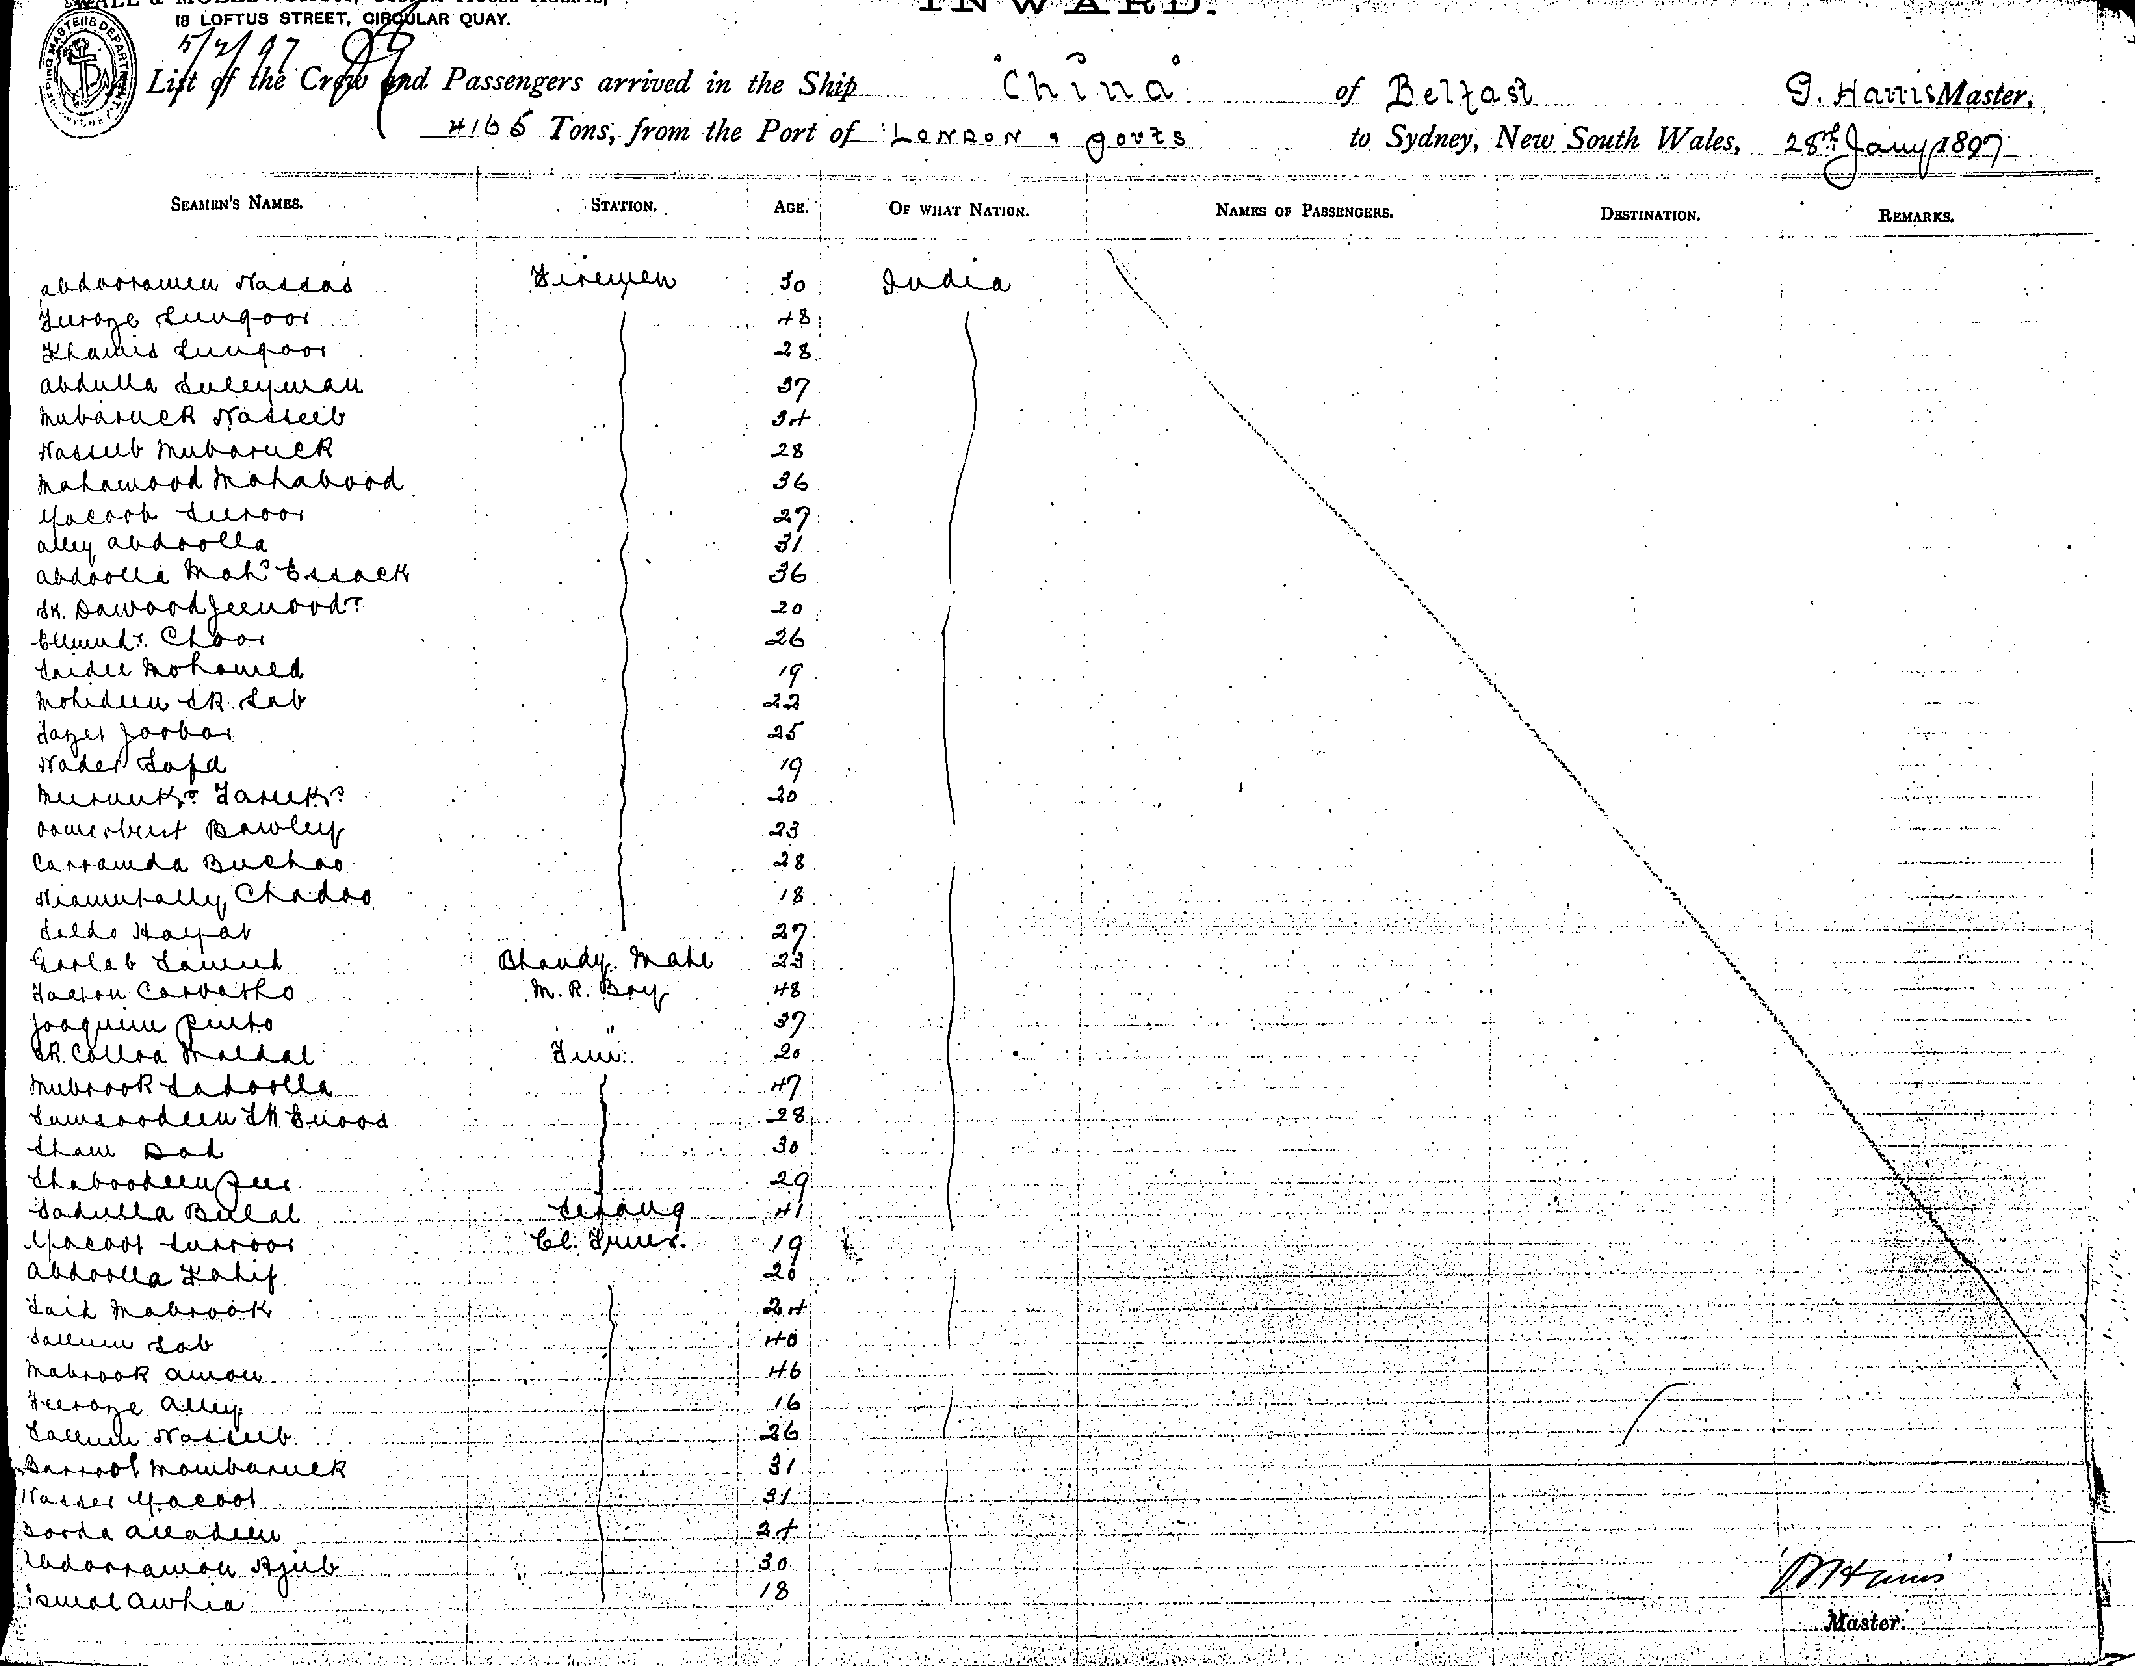 18 LOFTUS STREET, CIRCULAR QUAY.
INWARD.
5/2/97
List of the Crew and Passengers arrived in the Ship "China" of Belfast G. Harris Master,
4165 Tons, from the Port of London & ports to Sydney, New South Wales, 28th Jany 1897
SEAMEN'S NAMES. STATION. AGE. OF WHAT NATION. NAMES OF PASSENGERS. DESTINATION. REMARKS.
Abdooramen Nassas Firemen 30 India
Feroze Sungoor 48
Khamis Sungoor 28
Abdulla Suleyman 37
Mubaruck Nasseeb 34
Nasseeb Mubaruck 28
Mahamood Mahabood 36
Yacoob Suroor 27
Alley Abdoolla 31
Abdoolla Mohd Essack 36
Sk. Dawood 20
Choor 26
Saidee Mohamed 19
Mohideen Sk. Sab 22
Joobar 25
19
20
Bowley 23
Carramda Buchoo 28
Chadoo 18
Hayat 27
Bhandy. Mate 23
Carvalho M. R. Boy 48
Joaquim Pinto " 37
Sk. Colloa Maldal 20
Mubrook Sadoolla 47
Sumsoodeen Sk 28
Sham Dad 30
Shaboodeen 29
Sadulla Belal Serang 41
Yacoot Surroor 19
Abdoolla 20
Said Mabrook 24
Salleem Sab 40
Mabrook Amon 46
Feeroze Alley 16
Salleem Nasseeb 26
Barroot Mombaruck 31
Nasser Yacoot 31
24
Abdooramon Rjub 30
Ismal Awhia 18
Harris
Master.